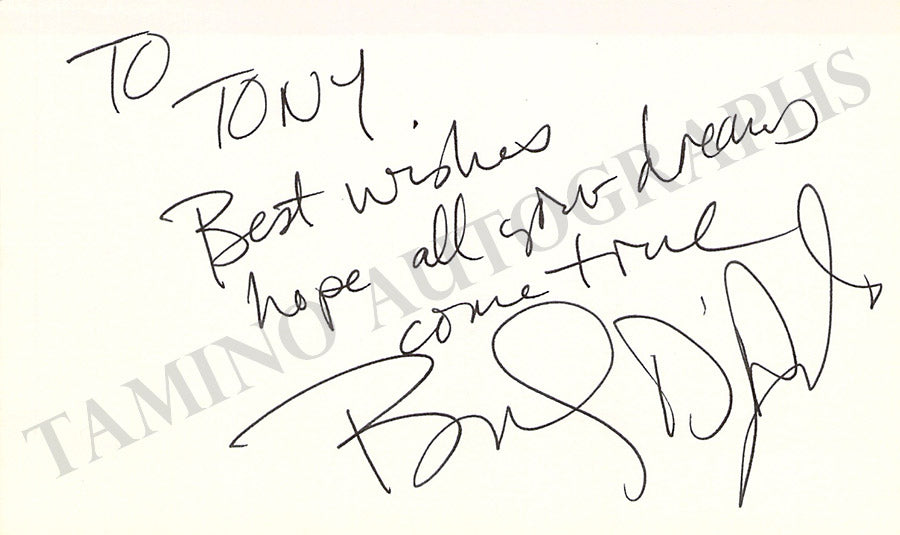 TO
TONY
Best wishes
hope all your dreams
come true
TAMINO AUTOGRAPHS